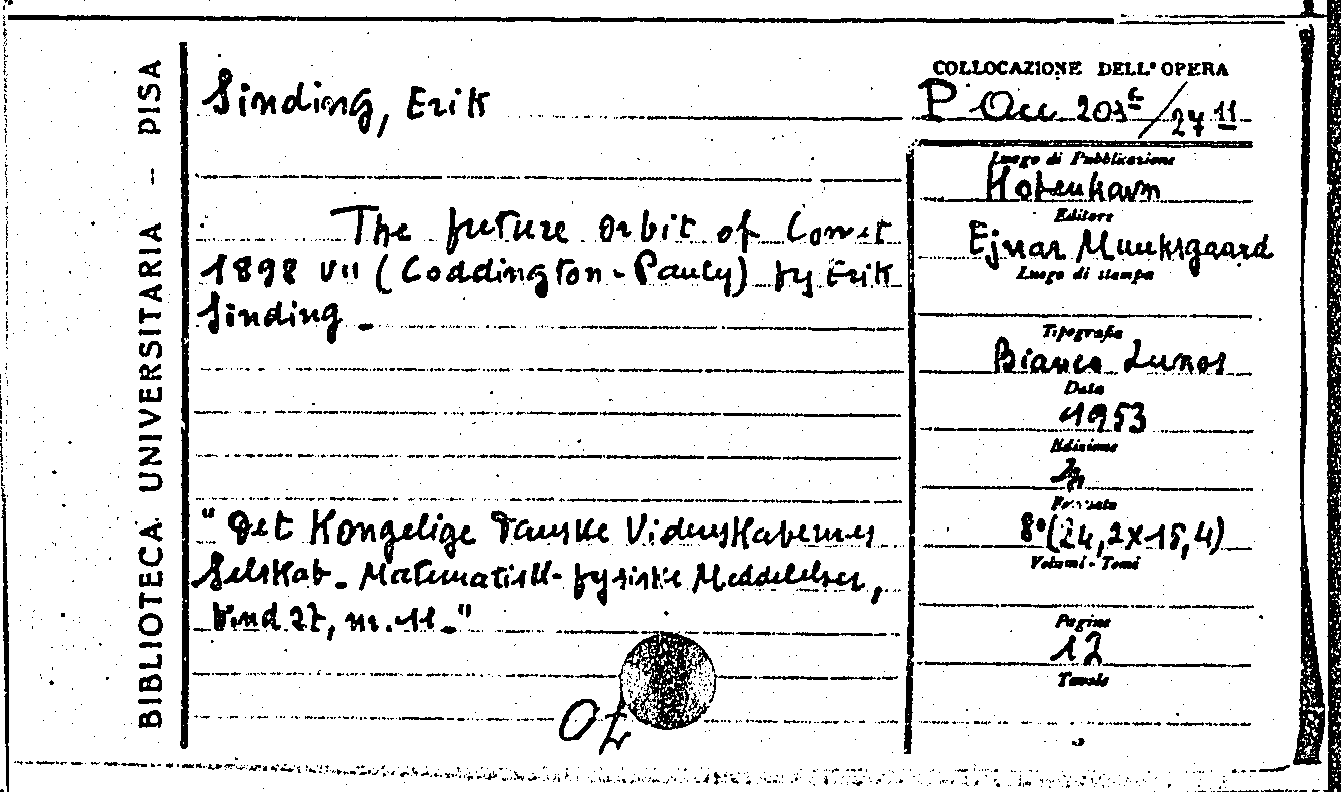 BIBLIOTECA UNIVERSITARIA - PISA
Sinding, Erik
The future orbit of Comet
1898 VII (Coddington-Pauly) by Erik
Sinding.
"Det Kongelige Danske Videnskabernes
Selskab. Matematisk-fysiske Meddelelser,
Bind 27, nr. 11."
COLLOCAZIONE DELL'OPERA
P Acc 203c/27 11
Luogo di Pubblicazione
Kobenhavn
Editore
Ejnar Munksgaard
Luogo di stampa
Tipografia
Bianco Lunos
Data
1953
Edizione
Formato
8°(24,2x15,4)
Volumi - Tomi
Pagine
12
Tavole